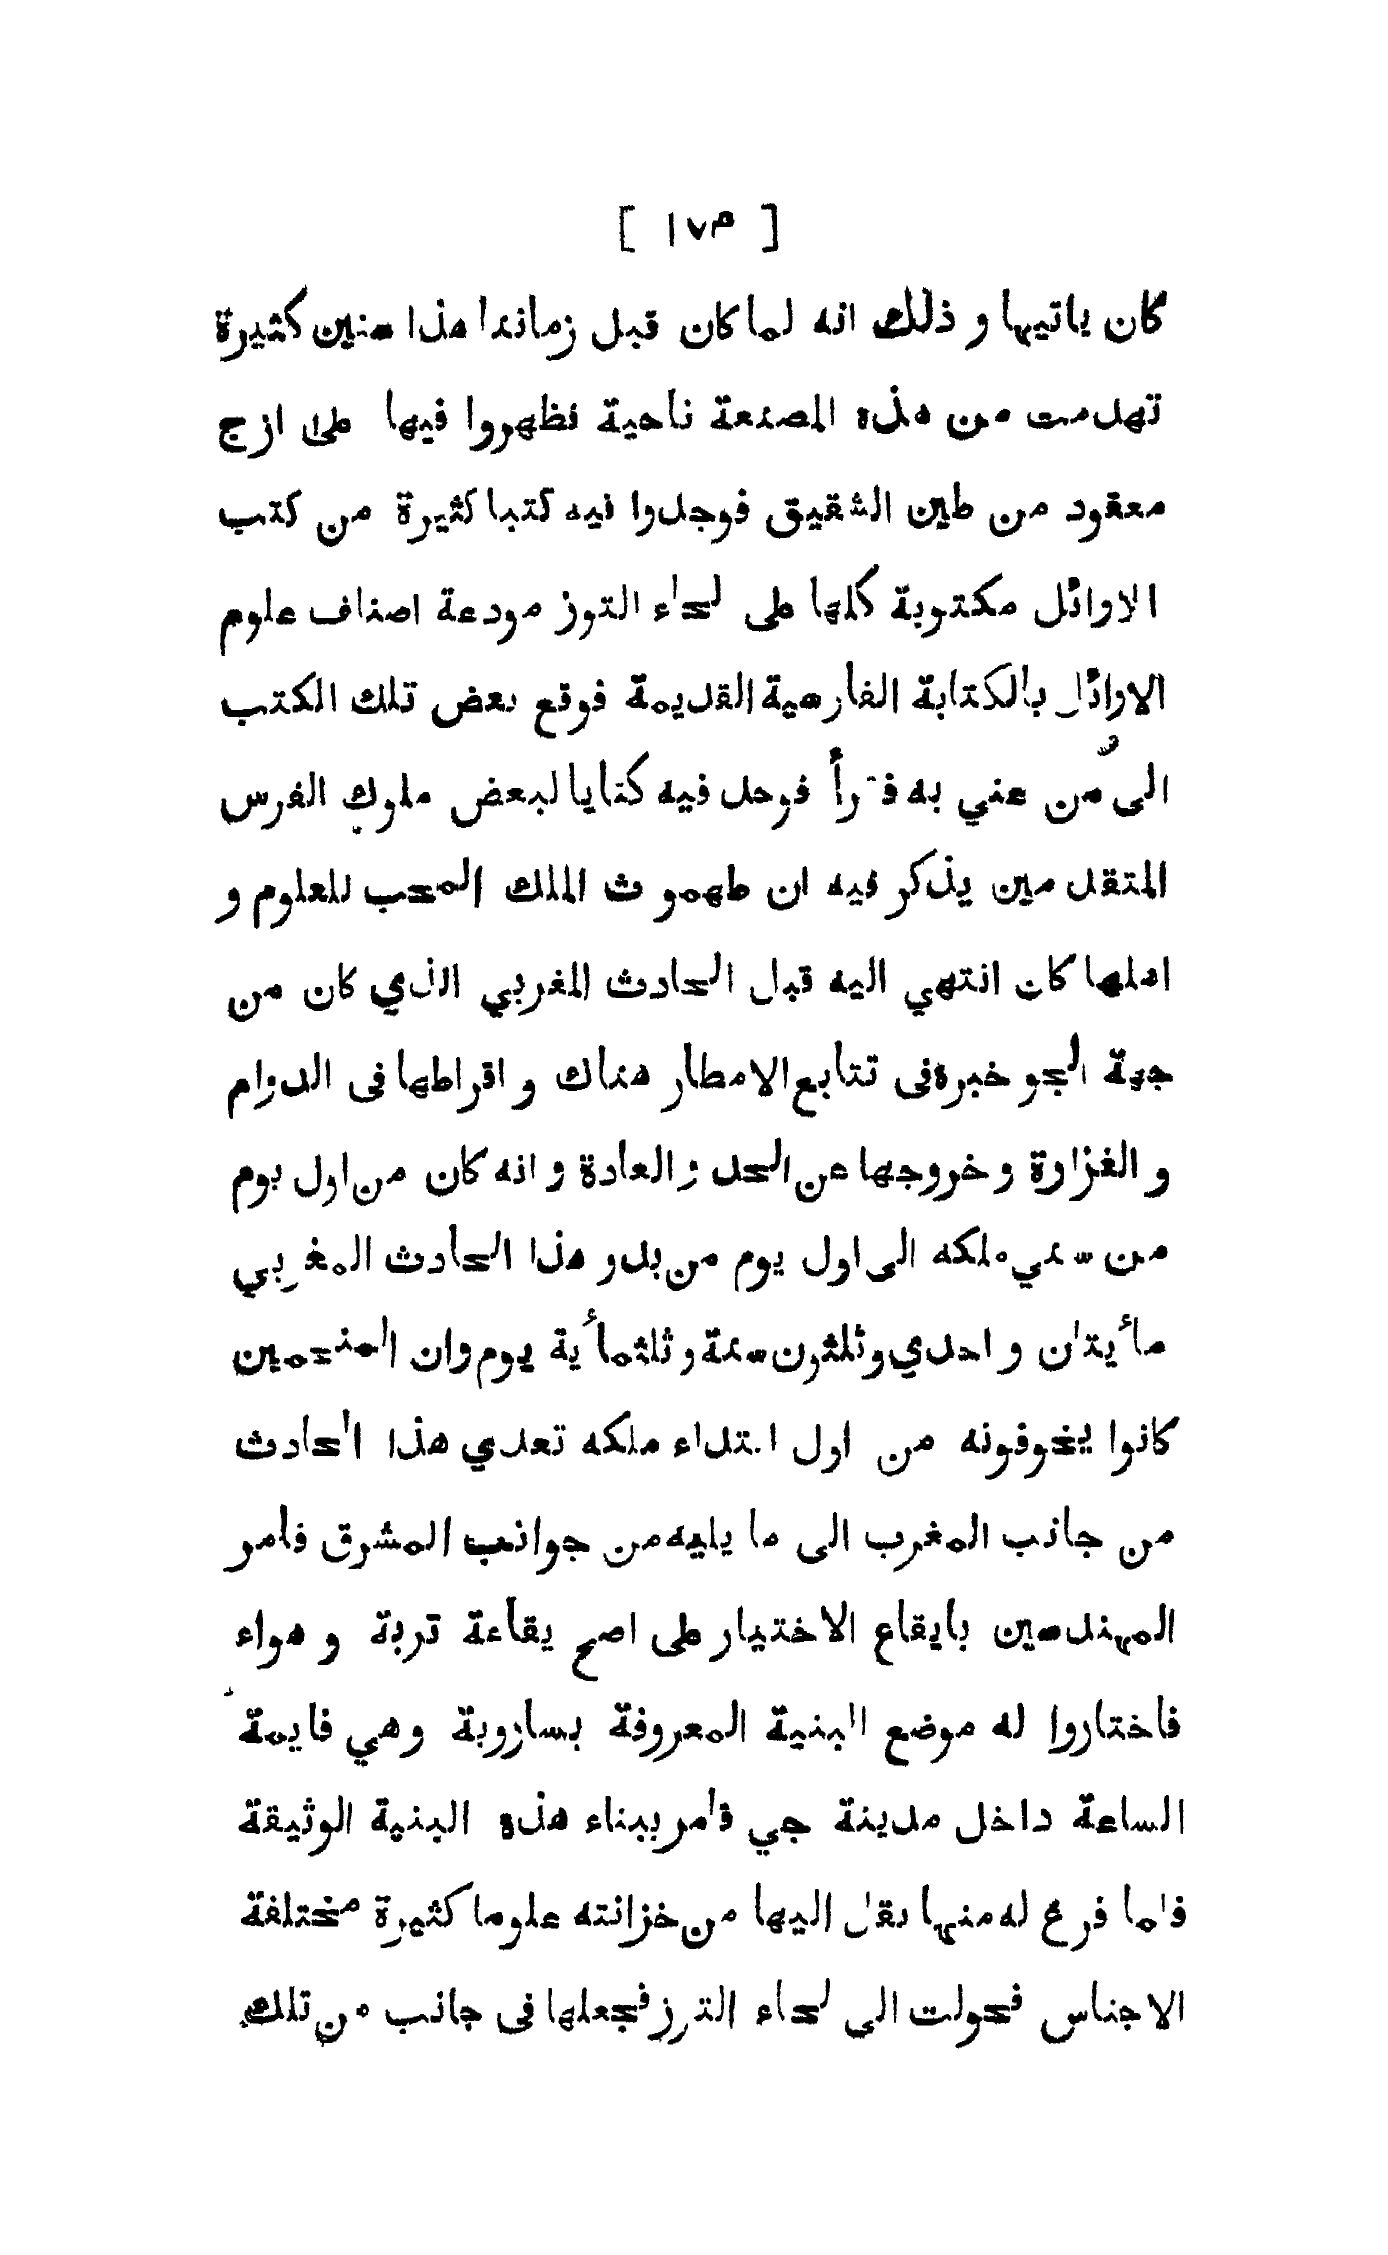 [ ١٧٣ ]
كان ياتيها و ذلك انه لما كان قبل زماننا هذا سنين كثيرة
تهدمت من هذه المصنعة ناحية فظهروا فيها على ازج
معقود من طين الشقيق فوجدوا فيه كتبا كثيرة من كتب
الاوائل مكتوبة كلها على لحاء التوز مودعة اصناف علوم
الاوائل بالكتابة الفارسية القديمة فوقع بعض تلك الكتب
الى من عني به فقرأ فوجد فيه كتابا لبعض ملوك الفرس
المتقدمين يذكر فيه ان طهمورث الملك المحب للعلوم و
اهلها كان انتهي اليه قبل الحادث المغربي الذي كان من
جهة الجو خبرة فى تتابع الامطار هناك و افراطها فى الدوام
و الغزارة و خروجها عن الحد و العادة و انه كان من اول يوم
من سني ملكه الى اول يوم من بدو هذا الحادث المغربي
مأيتان و احدي و ثلثون سنة و ثلثمأية يوم وان المنجمين
كانوا يخوفونه من اول ابتداء ملكه تعدي هذا الحادث
من جانب المغرب الى ما يليه من جوانب المشرق فامر
المهندسين بايقاع الاختيار على اصح بقاعة تربة و هواء
فاختاروا له موضع البنية المعروفة بساروية وهي قايمة
الساعة داخل مدينة جي فامر ببناء هذه البنية الوثيقة
فلما فرغ له منها نقل اليها من خزانته علوما كثيرة مختلفة
الاجناس فحولت الى لحاء التوز فجعلها فى جانب من تلك